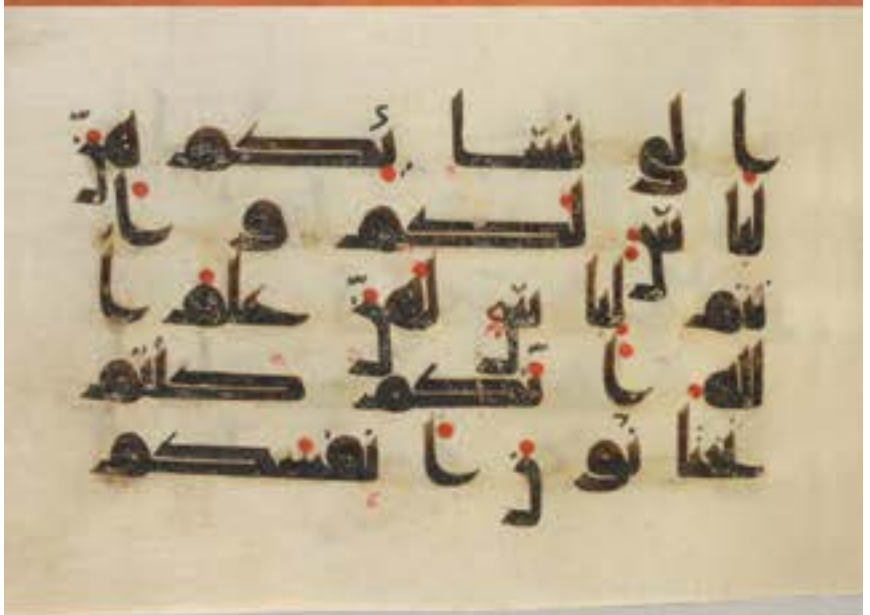 ا لى نسا ئكم هن
لبا س لكم و ا
نتم لبا س لهن علم ا
لله ا نكم كنتم
تختا نو ن ا نفسكم